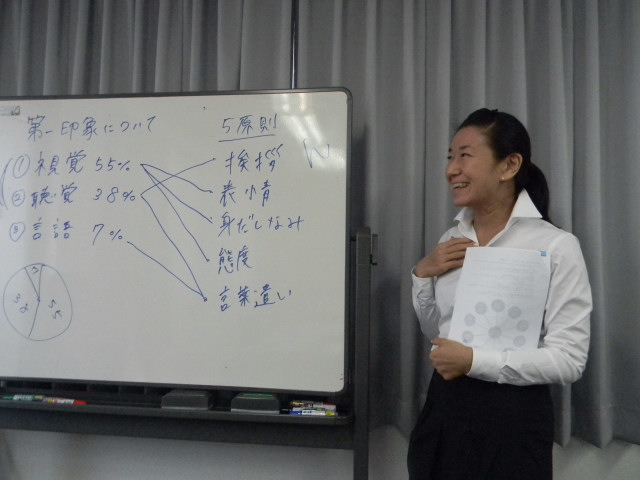 第一印象について
① 視覚 55%
② 聴覚 38%
③ 言語 7%
7
38
55
5原則
挨拶
表情
身だしなみ
態度
言葉遣い